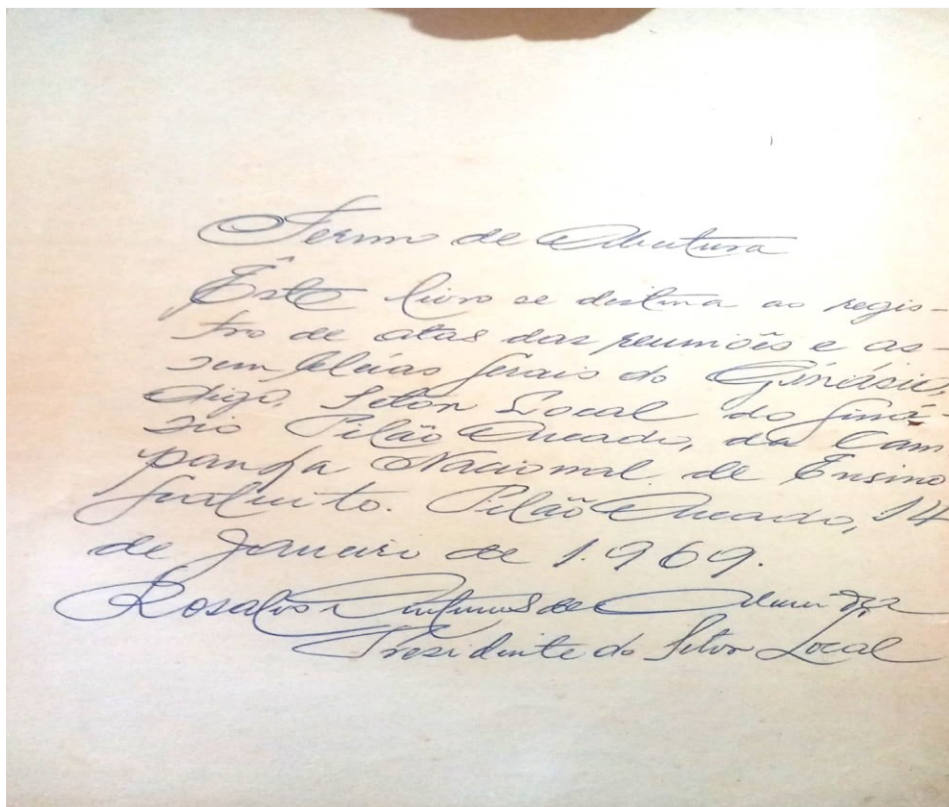 Termo de Abertura
Êste livro se destina ao regis-
tro de atas das reuniões e as-
sembléias gerais do Ginásio,
digo, Setor Local do Giná
sio Pilão Arcado, da Cam
panha Nacional de Ensino
Gratuito. Pilão Arcado, 14
de Janeiro de 1.969.
Rosalvo Antunes de
Presidente do Setor Local